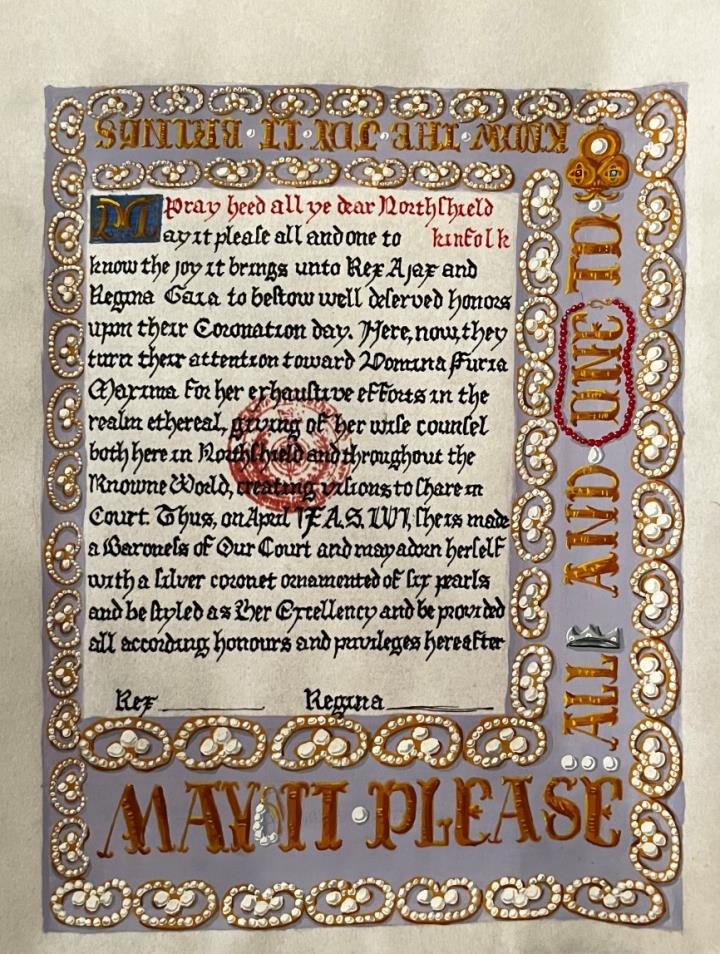 Pray heed all ye dear Northshield
kinfolk
May it please all and one to
know the joy it brings unto Rex Ajax and
Regina Gaia to bestow well deserved honors
upon their Coronation day. Here, now, they
turn their attention toward Domina Furia
Maxima for her exhaustive efforts in the
realm ethereal, giving of her wise counsel
both here in Northshield and throughout the
Knowne World, creating visions to share in
Court. Thus, on April 17 A.S. LVI, she is made
a Baroness of Our Court and may adorn herself
with a silver coronet ornamented of six pearls
and be styled as Her Excellency and be provided
all according honours and privileges hereafter
Rex Regina
MAY IT PLEASE
ALL AND ONE TO
KNOW THE JOY IT BRINGS